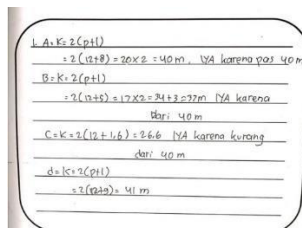 1. A = K = 2(p+l)
= 2(12+8) = 20x2 = 40 m, IYA karena pas 40 m
B = K = 2(p+l)
= 2(12+5) = 17x2 = 34+3 = 37m IYA karena
dari 40 m
C = K = 2(12+1,6) = 26.6 IYA karena kurang
dari 40 m
d = K = 2(p+l)
= 2(12+9) = 41 m